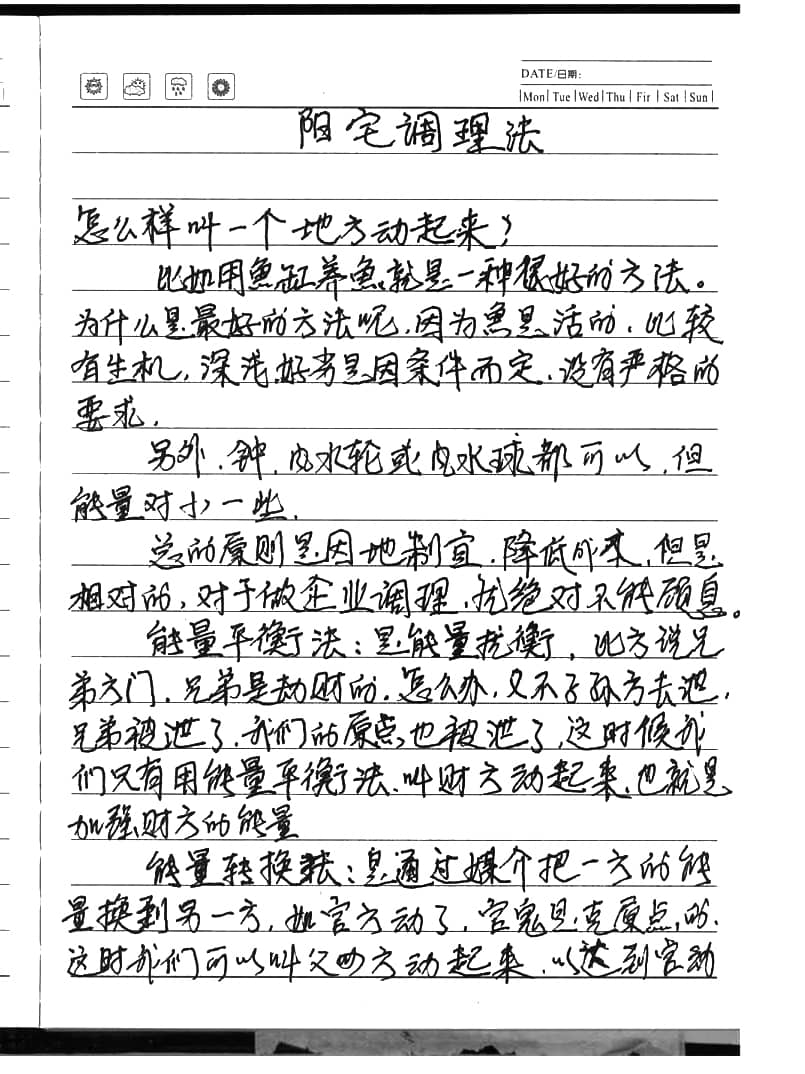 DATE/日期:
Mon Tue Wed Thu Fir Sat Sun
阳宅调理法
怎么样叫一个地方动起来?
比如用鱼缸养鱼,就是一种很好的方法。
为什么是最好的方法呢,因为鱼是活的,比较
有生机,深浅好劣是因条件而定,没有严格的
要求.
另外,钟,内水轮或内水球都可以,但
能量对小一些.
总的原则是因地制宜,降低成本,但是
相对的,对于做企业调理,扰绝对不能顾息。
能量平衡法:是能量扰衡,比方说兄
弟方门,兄弟是劫财的,怎么办,又不子孙方去泄,
兄弟被泄了,我们的原点,也被泄了,这时候我
们只有用能量平衡法,叫财方动起来,也就是
加强财方的能量
能量转换法:是通过媒介把一方的能
量换到另一方,如官方动了,官鬼是克原点的.
这时我们可以叫父母方动起来,以达到官动